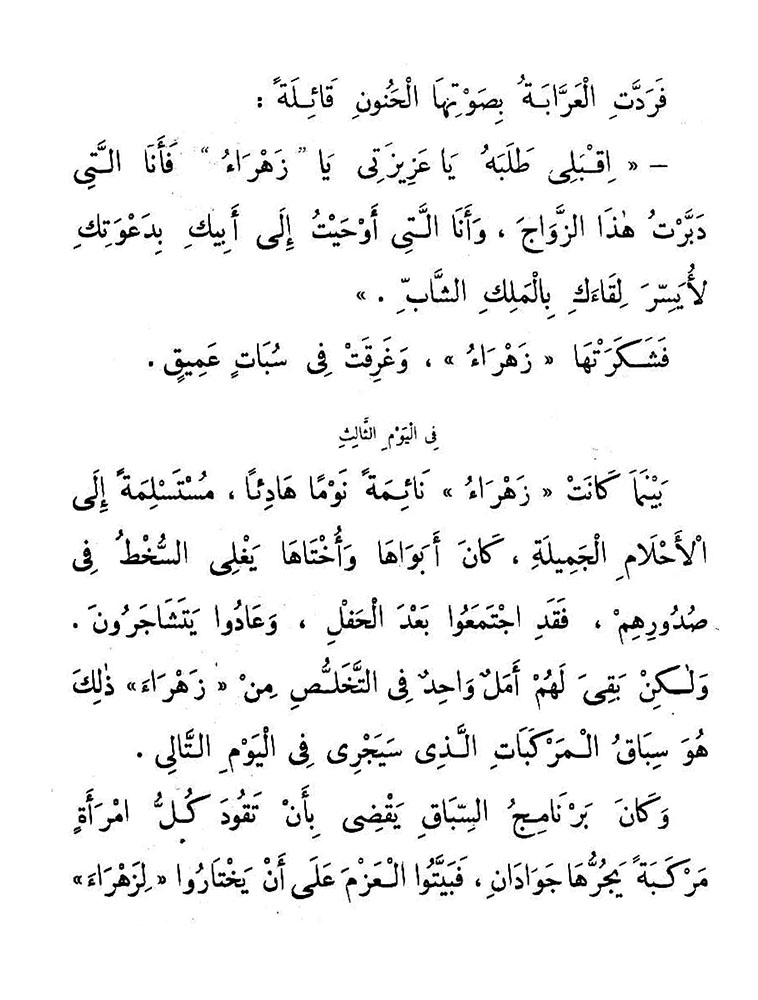 فَرَدَّتِ الْعَرَّابَةُ بِصَوْتِهَا الْحَنُونِ قَائِلَةً :
– « اِقْبَلِى طَلَبَهُ يَا عَزِيزَتِى يَا " زَهْرَاءُ " فَأَنَا الَّتِى
دَبَّرْتُ هٰذَا الزَّوَاجَ ، وَأَنَا الَّتِى أَوْحَيْتُ إِلَى أَبِيكِ بِدَعْوَتِكِ
لأُيَسِّرَ لِقَاءَكِ بِالْمَلِكِ الشَّابِّ . »
فَشَكَرَتْهَا « زَهْرَاءُ » ، وَغَرِقَتْ فِى سُبَاتٍ عَمِيقٍ .
فِى الْيَوْمِ الثَّالِثِ
بَيْنَمَا كَانَتْ « زَهْرَاءُ » نَائِمَةً نَوْمًا هَادِئًا ، مُسْتَسْلِمَةً إِلَى
الْأَحْلَامِ الْجَمِيلَةِ ، كَانَ أَبَوَاهَا وَأُخْتَاهَا يَغْلِى السُّخْطُ فِى
صُدُورِهِمْ ، فَقَدِ اجْتَمَعُوا بَعْدَ الْحَفْلِ ، وَعَادُوا يَتَشَاجَرُونَ .
وَلٰكِنْ بَقِىَ لَهُمْ أَمَلٌ وَاحِدٌ فِى التَّخَلُّصِ مِنْ « زَهْرَاءَ» ذٰلِكَ
هُوَ سِبَاقُ الْمَرْكَبَاتِ الَّذِى سَيَجْرِى فِى الْيَوْمِ التَّالِى .
وَكَانَ بَرْنَامِجُ السِّبَاقِ يَقْضِى بِأَنْ تَقُودَ كُلُّ امْرَأَةٍ
مَرْكَبَةً يَجُرُّهَا جَوَادَانِ ، فَبَيَّتُوا الْعَزْمَ عَلَى أَنْ يَخْتَارُوا « لِزَهْرَاءَ»